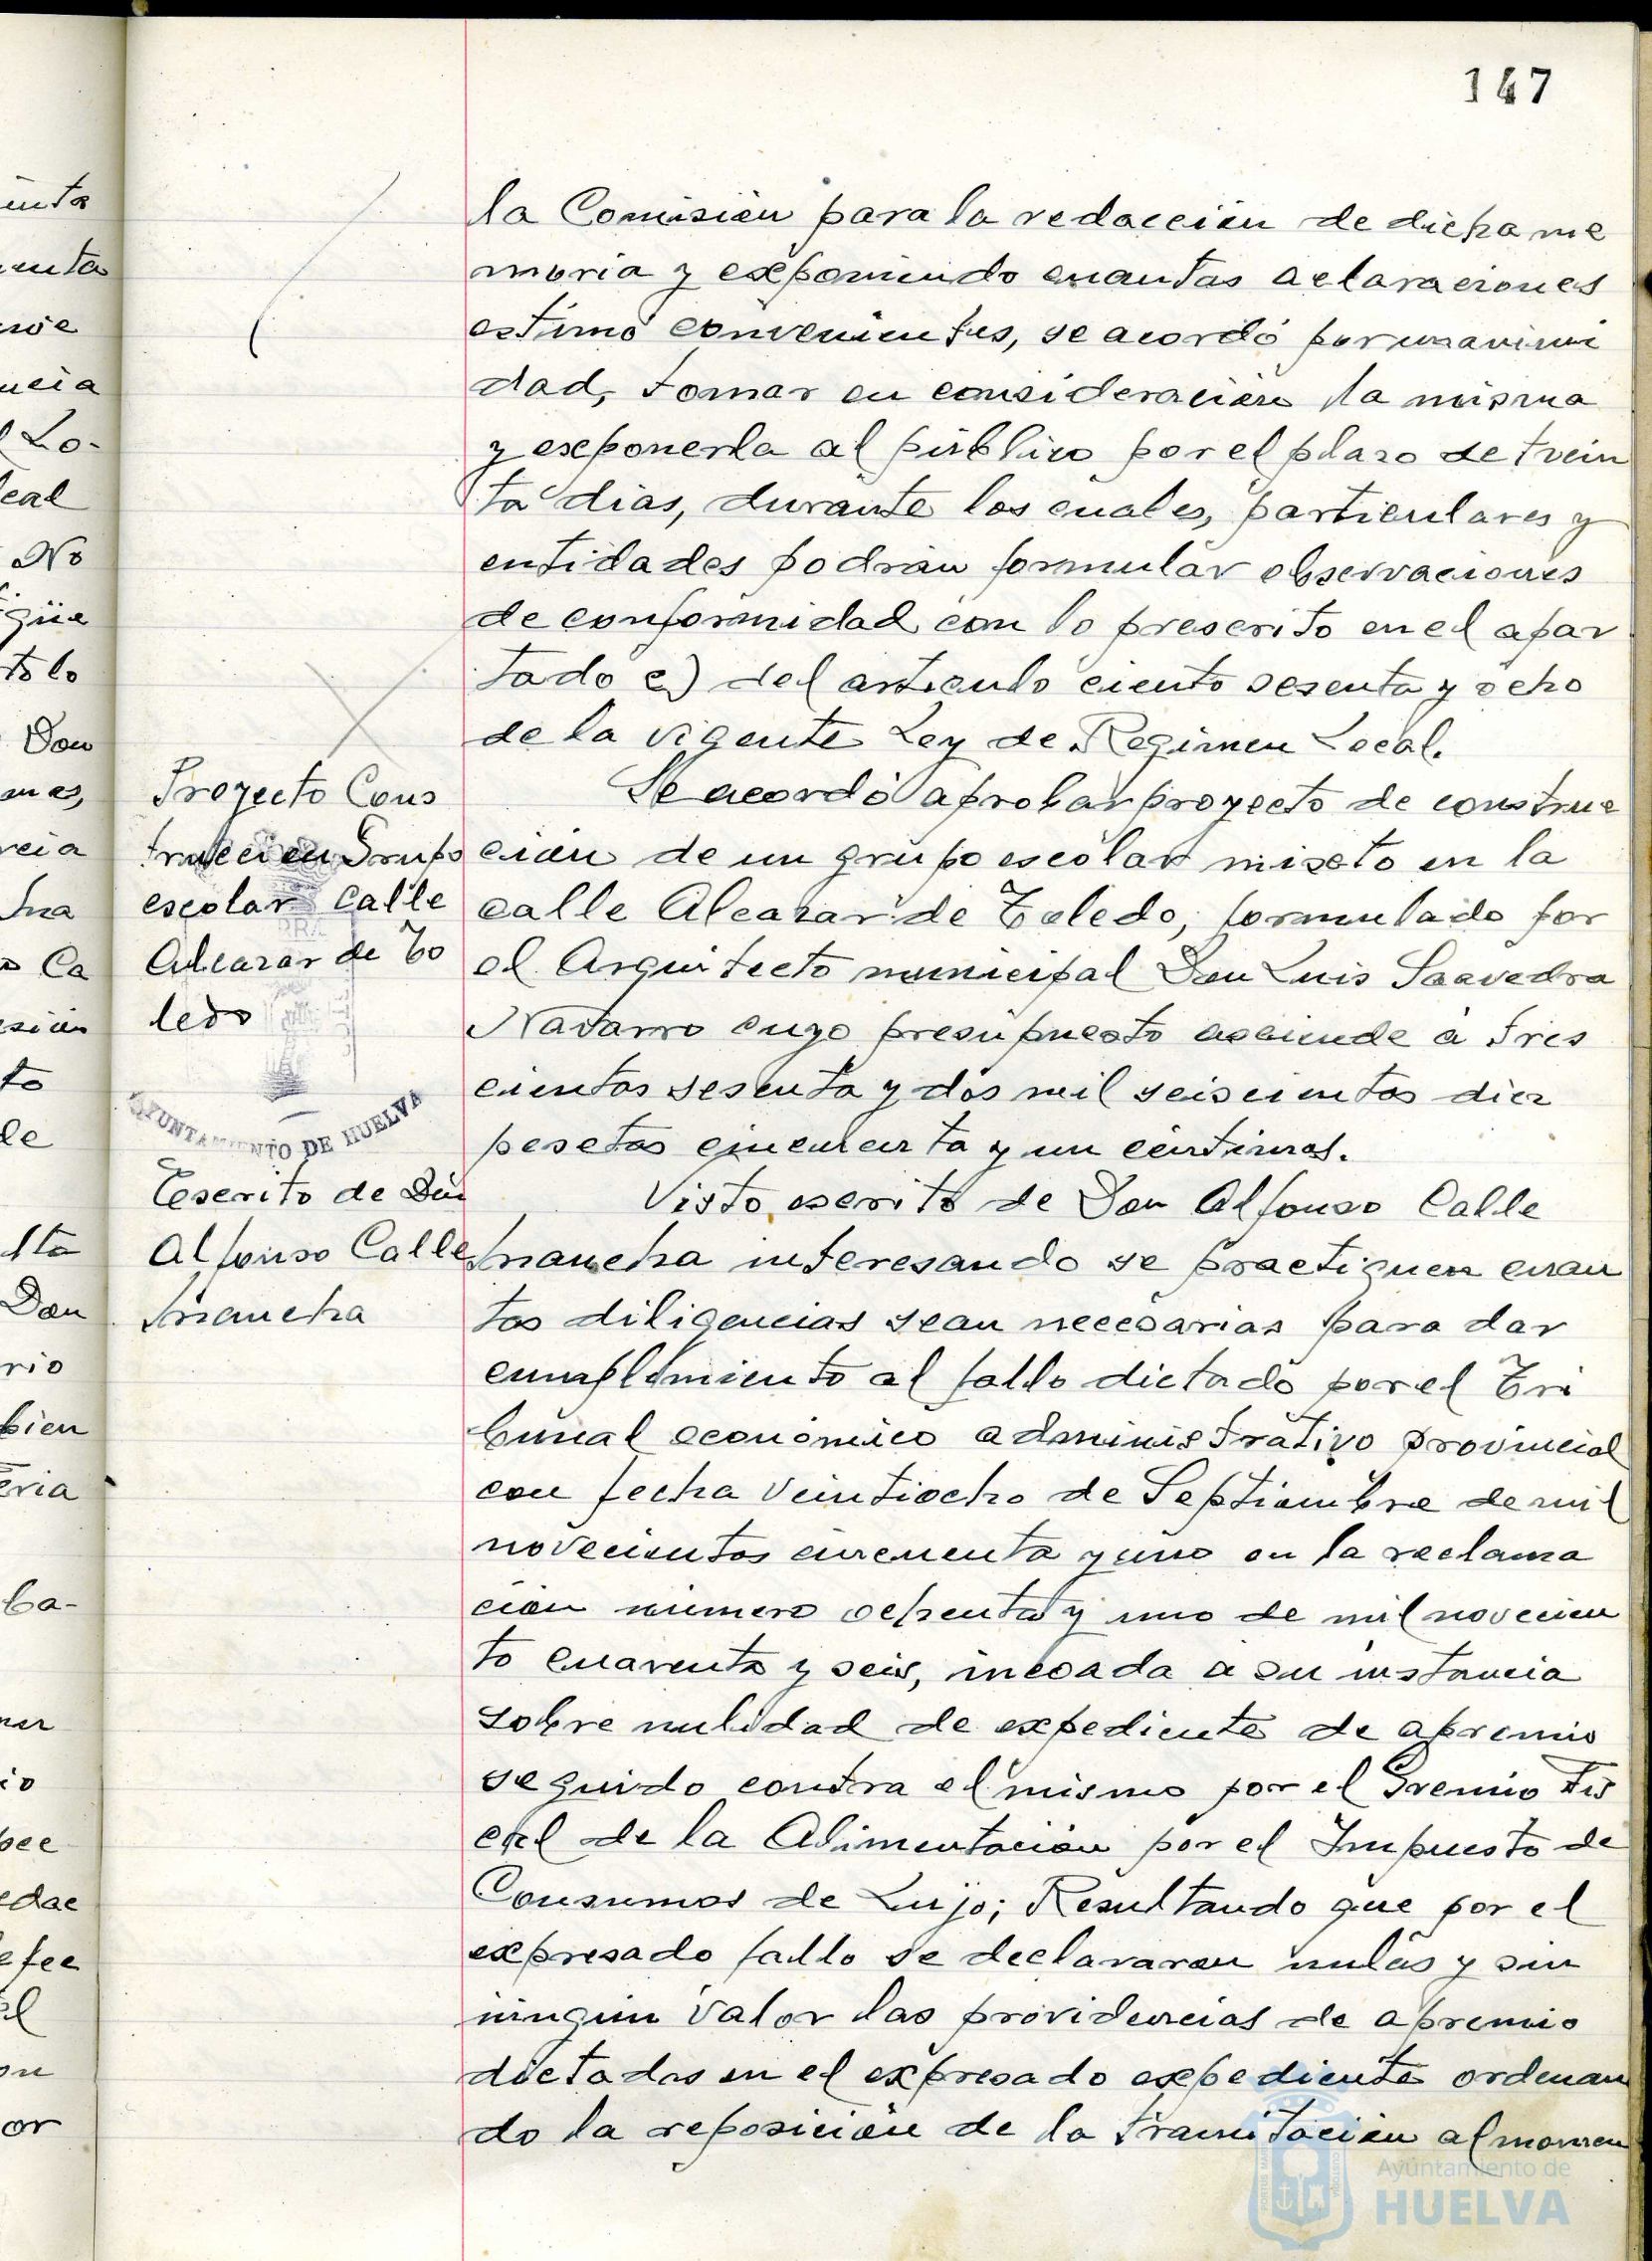 147
la Comisión para la redacción de dicha me
moria y exponiendo cuantas aclaraciones
estimó convenientes, se acordó por unanimi
dad, tomar en consideración la misma
y exponerla al público por el plazo de trein
ta dias, durante los cuales, particulares y
entidades podrán formular observaciones
de conformidad con lo prescrito en el apar
tado c) del articulo ciento sesenta y ocho
de la vigente Ley de Regimen Local.
Proyecto Cons
trucción Grupo
escolar calle
Alcazar de To
ledo
Se acordó aprobar proyecto de construc
ción de un grupo escolar mixto en la
calle Alcazar de Toledo, formulado por
el Arquitecto municipal Don Luis Saavedra
Navarro cuyo presupuesto asciende a tres
cientas sesenta y dos mil seiscientas diez
pesetas cincuenta y un céntimos.
AYUNTAMIENTO DE HUELVA
Escrito de Don
Alfonso Calle
Mancha
Visto escrito de Don Alfonso Calle
Mancha interesando se practiquen cuan
tas diligencias sean necesarias para dar
cumplimiento al fallo dictado por el Tri
bunal económico administrativo provincial
con fecha veintiocho de Septiembre de mil
novecientos cincuenta y uno en la reclama
ción número ochenta y uno de mil novecien
to cuarenta y seis, incoada a su instancia
sobre nulidad de expediente de apremio
seguido contra el mismo por el Gremio Fis
cal de la Alimentación por el Impuesto de
Consumos de Lujo; Resultando que por el
expresado fallo se declararon nulas y sin
ningun valor las providencias de apremio
dictadas en el expresado expediente ordenan
do la reposición de la tramitación al momen
Ayuntamiento de
HUELVA
inta
Lo-
eal
No
güe
to lo
Don
mas,
Ca
to
de
Don
rio
bien
ba-
io
edac
el
or